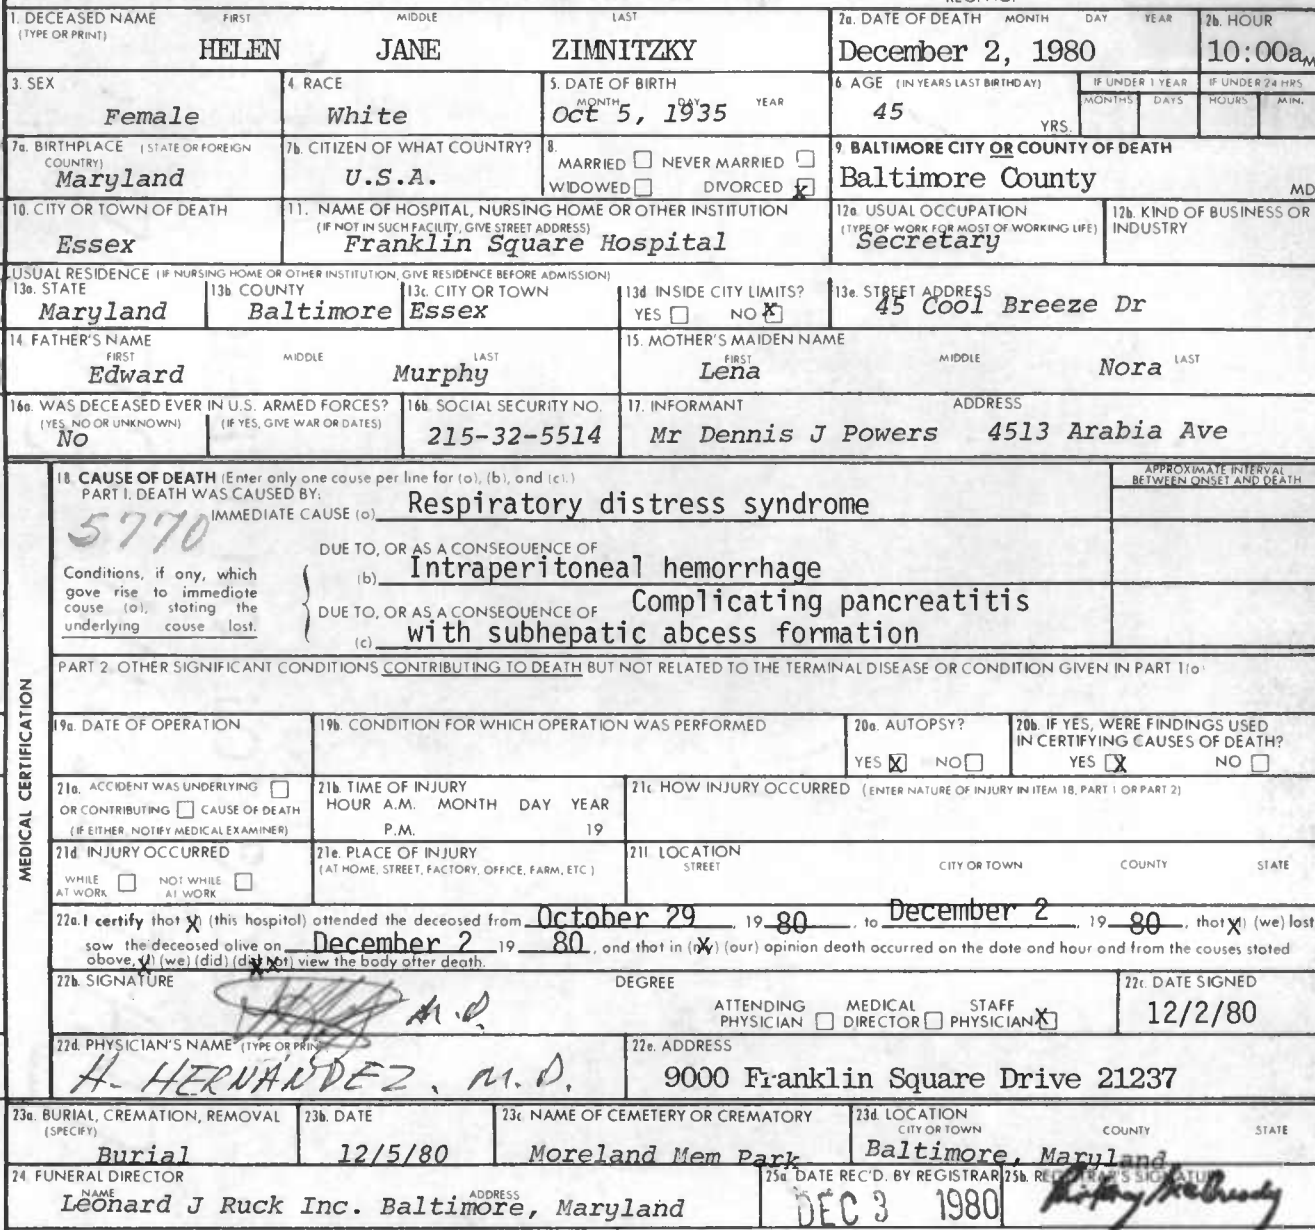 1. DECEASED NAME FIRST MIDDLE LAST
(TYPE OR PRINT)
HELEN JANE ZIMNITZKY
2a. DATE OF DEATH MONTH DAY YEAR
December 2, 1980
2b. HOUR
10:00a M
3. SEX
Female
4 RACE
White
5. DATE OF BIRTH
MONTH DAY YEAR
Oct 5, 1935
6 AGE (IN YEARS LAST BIRTHDAY)
45
YRS.
IF UNDER 1 YEAR
MONTHS DAYS
IF UNDER 24 HRS
HOURS MIN.
7a. BIRTHPLACE (STATE OR FOREIGN
COUNTRY)
Maryland
7b. CITIZEN OF WHAT COUNTRY?
U.S.A.
8.
MARRIED NEVER MARRIED
WIDOWED DIVORCED X
9. BALTIMORE CITY OR COUNTY OF DEATH
Baltimore County
MD
10. CITY OR TOWN OF DEATH
Essex
11. NAME OF HOSPITAL, NURSING HOME OR OTHER INSTITUTION
(IF NOT IN SUCH FACILITY, GIVE STREET ADDRESS)
Franklin Square Hospital
12a. USUAL OCCUPATION
(TYPE OF WORK FOR MOST OF WORKING LIFE)
Secretary
12b. KIND OF BUSINESS OR
INDUSTRY
USUAL RESIDENCE (IF NURSING HOME OR OTHER INSTITUTION, GIVE RESIDENCE BEFORE ADMISSION)
13a. STATE
Maryland
13b COUNTY
Baltimore
13c. CITY OR TOWN
Essex
13d INSIDE CITY LIMITS?
YES NO X
13e. STREET ADDRESS
45 Cool Breeze Dr
14 FATHER'S NAME
FIRST MIDDLE LAST
Edward Murphy
15. MOTHER'S MAIDEN NAME
FIRST MIDDLE LAST
Lena Nora
16a. WAS DECEASED EVER IN U.S. ARMED FORCES?
(YES, NO OR UNKNOWN) (IF YES, GIVE WAR OR DATES)
No
16b SOCIAL SECURITY NO.
215-32-5514
17. INFORMANT ADDRESS
Mr Dennis J Powers 4513 Arabia Ave
MEDICAL CERTIFICATION
18. CAUSE OF DEATH (Enter only one cause per line for (a), (b), and (c).)
PART I. DEATH WAS CAUSED BY:
APPROXIMATE INTERVAL
BETWEEN ONSET AND DEATH
IMMEDIATE CAUSE (a) Respiratory distress syndrome
5770
DUE TO, OR AS A CONSEQUENCE OF
(b) Intraperitoneal hemorrhage
Conditions, if any, which
gave rise to immediate
cause (a), stating the
underlying cause last.
DUE TO, OR AS A CONSEQUENCE OF Complicating pancreatitis
(c) with subhepatic abcess formation
PART 2 OTHER SIGNIFICANT CONDITIONS CONTRIBUTING TO DEATH BUT NOT RELATED TO THE TERMINAL DISEASE OR CONDITION GIVEN IN PART 1(a)
19a. DATE OF OPERATION
19b. CONDITION FOR WHICH OPERATION WAS PERFORMED
20a. AUTOPSY?
YES X NO
20b. IF YES, WERE FINDINGS USED
IN CERTIFYING CAUSES OF DEATH?
YES X NO
21a. ACCIDENT WAS UNDERLYING
OR CONTRIBUTING CAUSE OF DEATH
(IF EITHER, NOTIFY MEDICAL EXAMINER)
21b. TIME OF INJURY
HOUR A.M. MONTH DAY YEAR
P.M. 19
21c. HOW INJURY OCCURRED (ENTER NATURE OF INJURY IN ITEM 18, PART 1 OR PART 2)
21d. INJURY OCCURRED
WHILE AT WORK NOT WHILE AT WORK
21e. PLACE OF INJURY
(AT HOME, STREET, FACTORY, OFFICE, FARM, ETC)
21f. LOCATION
STREET CITY OR TOWN COUNTY STATE
22a. I certify that X(I) (this hospital) attended the deceased from October 29, 19 80, to December 2 19 80, that X(I) (we) last
saw the deceased alive on December 2 19 80, and that in (my) (our) opinion death occurred on the date and hour and from the causes stated
above, (I) (we) (did) (did not) view the body after death.
22b. SIGNATURE
M.D.
DEGREE
ATTENDING PHYSICIAN MEDICAL DIRECTOR STAFF PHYSICIAN X
22c. DATE SIGNED
12/2/80
22d. PHYSICIAN'S NAME (TYPE OR PRINT)
H. HERNÁNDEZ. M.D.
22e. ADDRESS
9000 Franklin Square Drive 21237
23a. BURIAL, CREMATION, REMOVAL
(SPECIFY)
Burial
23b. DATE
12/5/80
23c NAME OF CEMETERY OR CREMATORY
Moreland Mem Park
23d. LOCATION
CITY OR TOWN COUNTY STATE
Baltimore, Maryland
24 FUNERAL DIRECTOR
NAME ADDRESS
Leonard J Ruck Inc. Baltimore, Maryland
25a DATE REC'D. BY REGISTRAR
DEC 3 1980
25b. REGISTRAR'S SIGNATURE